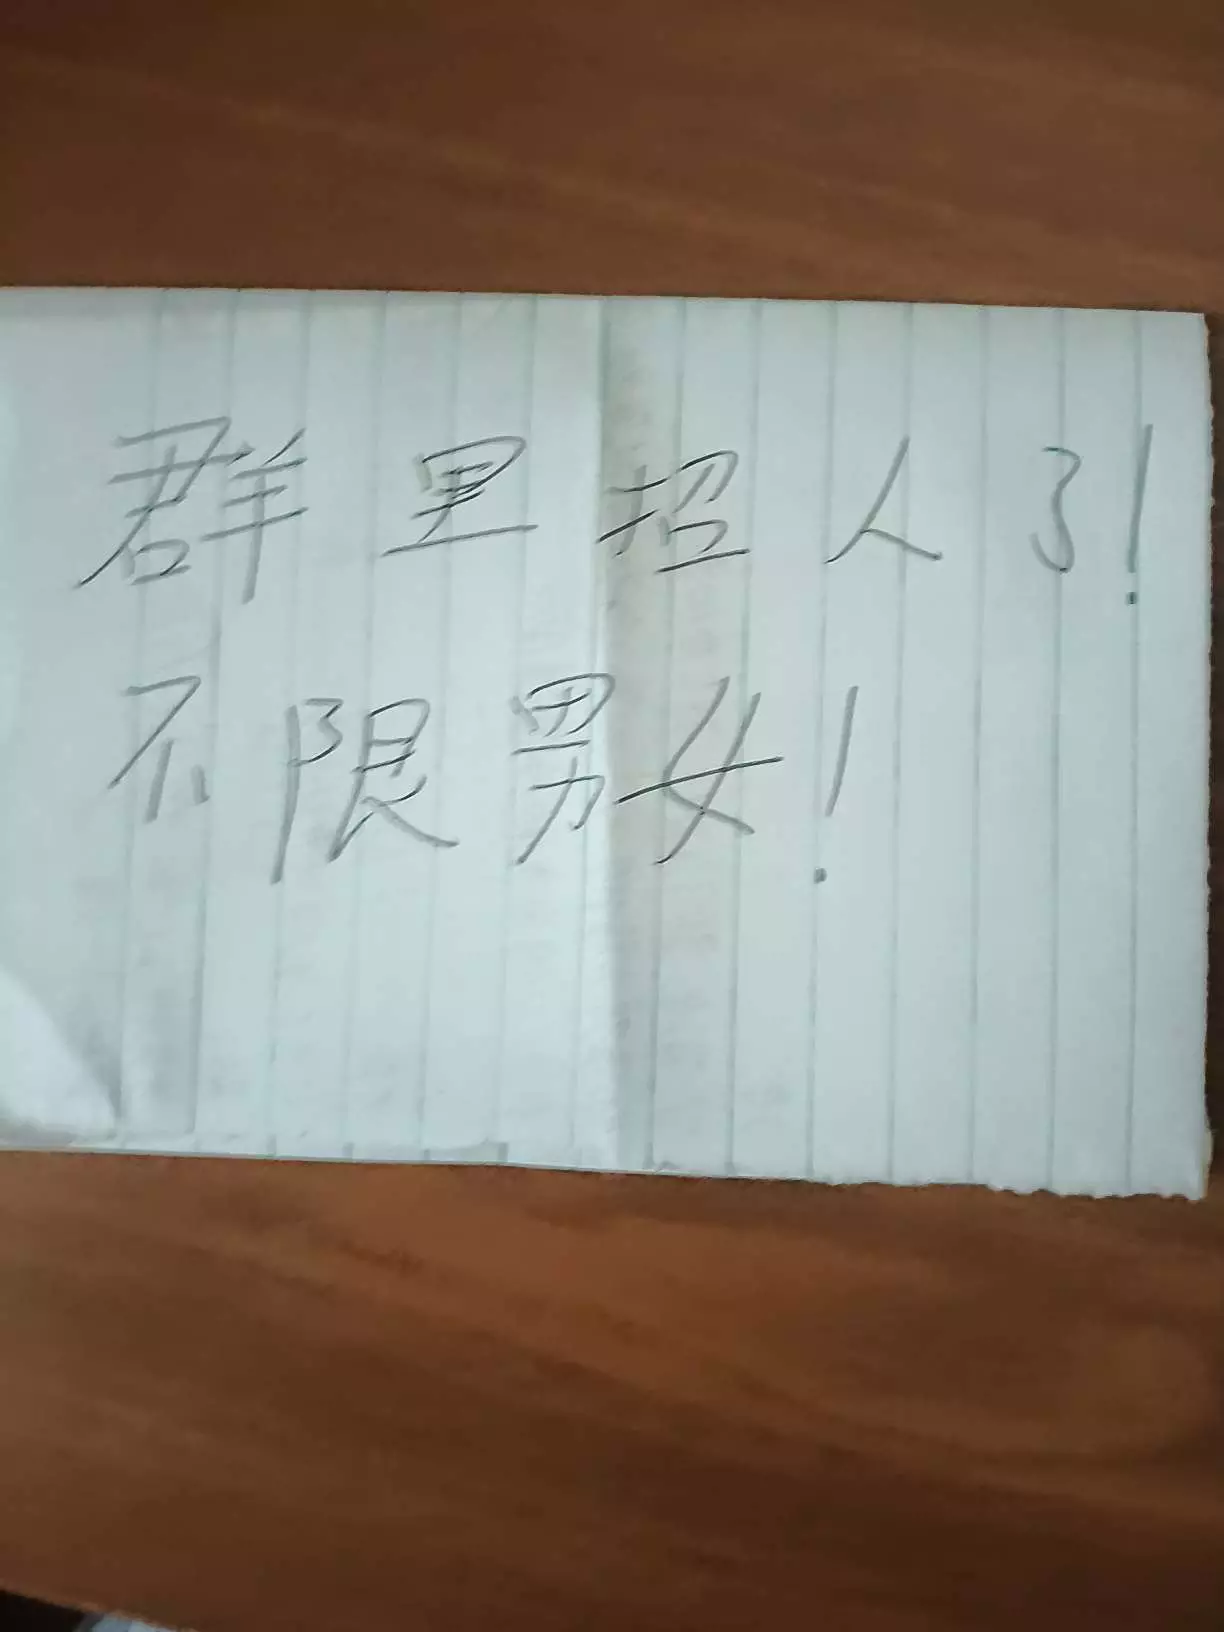 群里招人了!
不限男女!